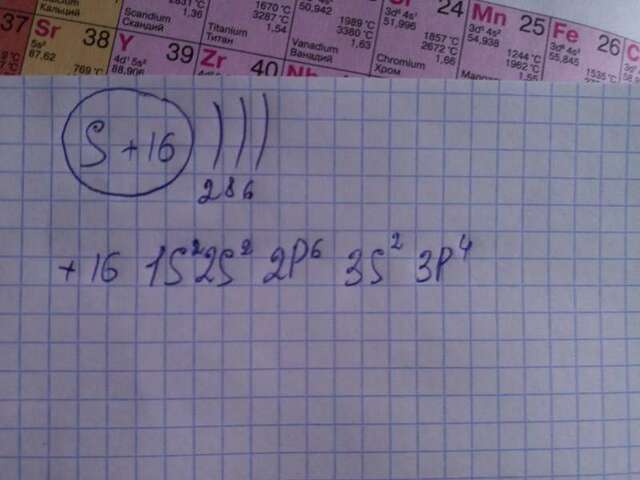 37 Sr 38 Y 39 Zr 40 Nb
5s²
87,62
769 °C
4d¹ 5s²
88,906
Кальций
Scandium
Скандий
1,36
1670 °C
3287 °C
1,54
Titanium
Титан
50,942
1989 °C
3380 °C
1,63
Vanadium
Ванадий
24
3d⁵ 4s¹
51,996
1857 °C
2672 °C
1,66
Chromium
Хром
Mn 25
3d⁵ 4s²
54,938
1244 °C
1962 °C
Fe 26
3d⁶ 4s²
55,845
1535 °C
S +16 ) ) )
2 8 6
+ 16 1S² 2S² 2P⁶ 3S² 3P⁴